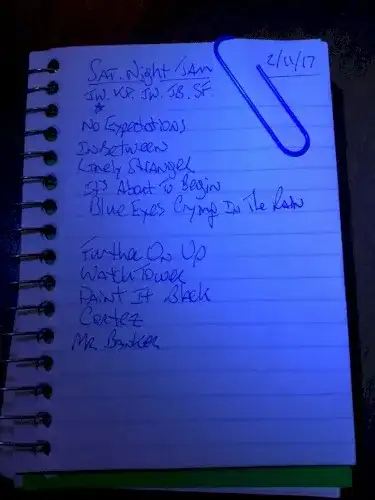 2/11/17
SAT. Night JAM
JW. KP. JW. JB. SF.
*
No Expectations
In Between
Lonely Stranger
It's About To Begin
Blue Eyes Crying In The Rain
Further On Up
Watch Tower
Paint It Black
Cortez
Mr Banker